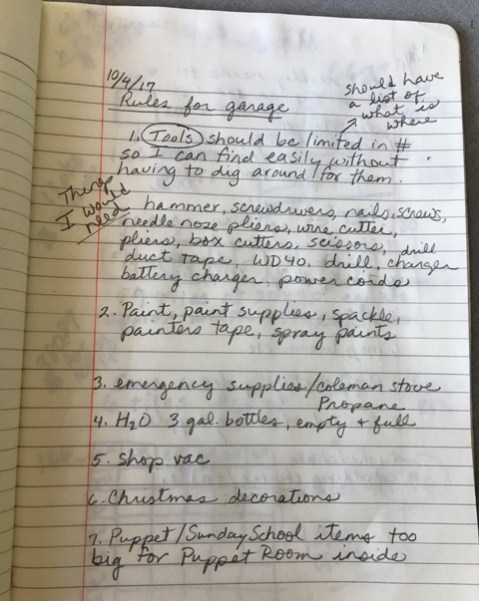 10/4/17
Rules for garage
should have
a list of
what is
where
1. Tools should be limited in #
so I can find easily without
having to dig around for them.
Things
I would
need
hammer, screwdrivers, nails, screws,
needle nose pliers, wire cutter,
pliers, box cutters, scissors, drill
duct tape, WD40, drill, charger
battery charger, power cords
2. Paint, paint supplies, spackle,
painters tape, spray paints
3. emergency supplies/coleman stove
Propane
4. H2O 3 gal. bottles, empty + full
5. Shop vac
6. Christmas decorations
7. Puppet/Sunday School items too
big for Puppet Room inside